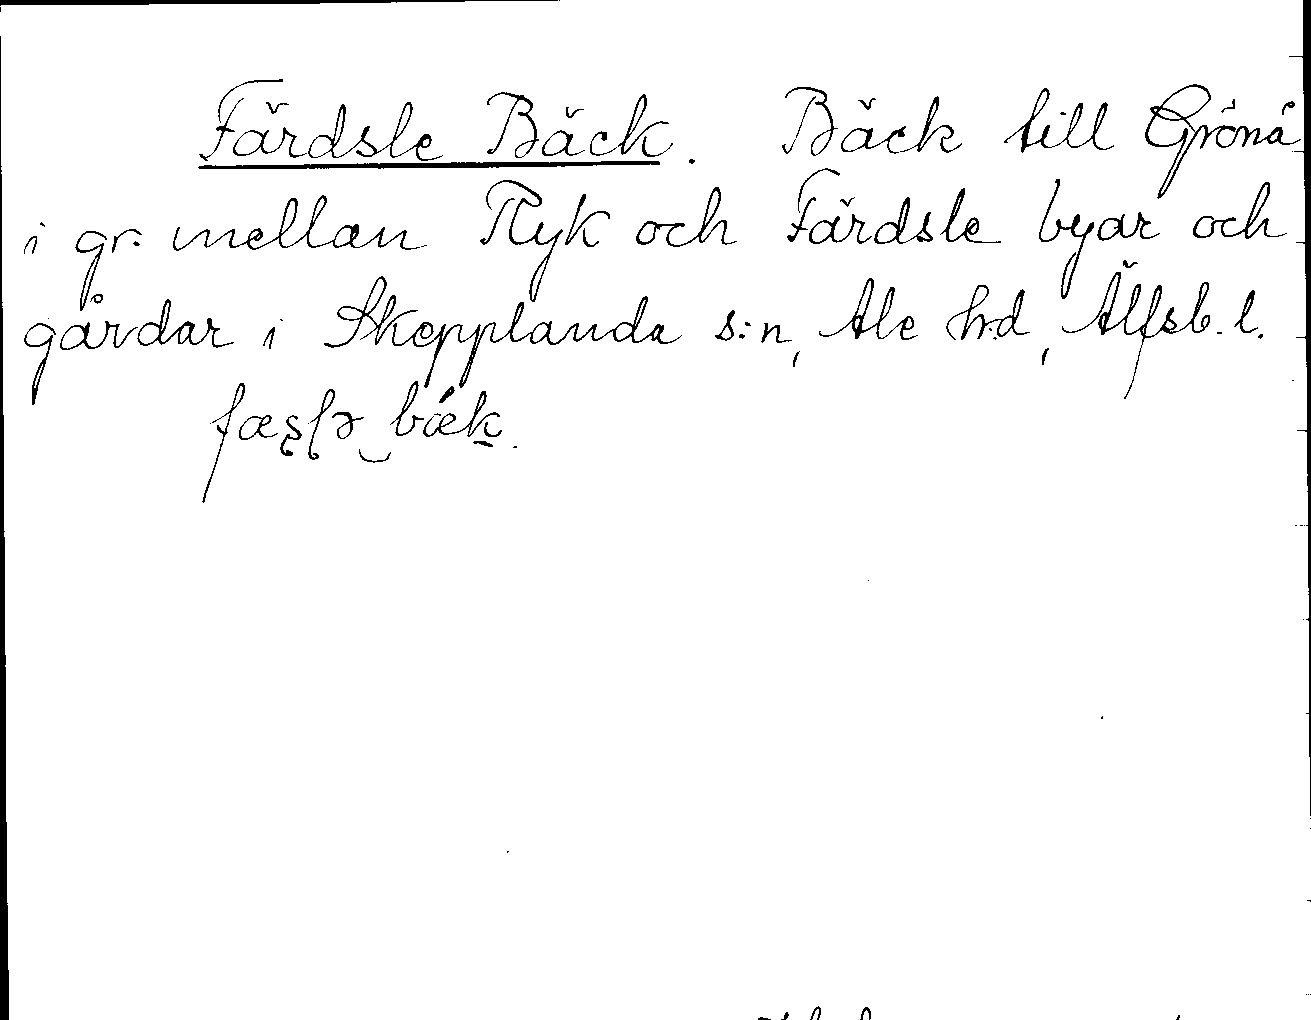 Färdsle Bäck. Bäck till Grönå
i gr. mellan Ryk och Färdsle byar och
gårdar i Skepplanda s:n, Ale h:d, Älfsb. l.
bæk.